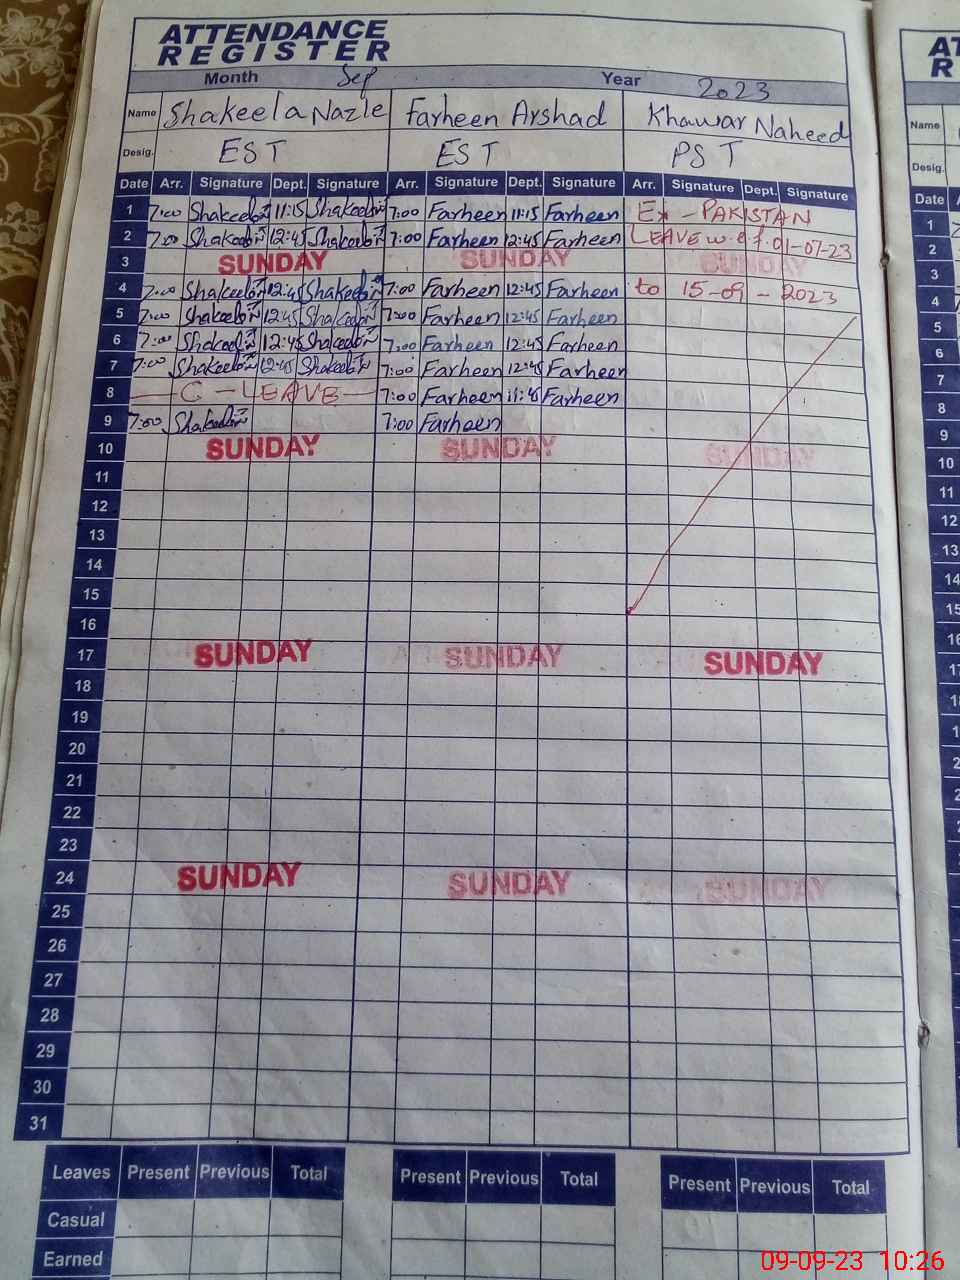 ATTENDANCE
REGISTER
Month Sep Year 2023
Name Shakeela Nazle Farheen Arshad Khawar Naheed Name
Desig. EST EST PST Desig.
Date Arr. Signature Dept. Signature Arr. Signature Dept. Signature Arr. Signature Dept. Signature Date
1 7:00 Shakeela 11:15 Shakeela 7:00 Farheen 11:15 Farheen Ex-PAKISTAN 1
2 7:00 Shakeela 12:45 Shakeela 7:00 Farheen 12:45 Farheen LEAVE w.e.f. 01-07-23 2
3 SUNDAY SUNDAY SUNDAY 3
4 7:00 Shakeela 12:45 Shakeela 7:00 Farheen 12:45 Farheen to 15-09-2023 4
5 7:00 Shakeela 12:45 Shakeela 7:00 Farheen 12:45 Farheen 5
6 7:00 Shakeela 12:45 Shakeela 7:00 Farheen 12:45 Farheen 6
7 7:00 Shakeela 12:45 Shakeela 7:00 Farheen 12:45 Farheen 7
8 C-LEAVE 7:00 Farheen 11:45 Farheen 8
9 7:00 Shakeela 7:00 Farheen 9
10 SUNDAY SUNDAY SUNDAY 10
11 11
12 12
13 13
14 14
15 15
16 16
17 SUNDAY SUNDAY SUNDAY 17
18
19
20
21
22
23
24 SUNDAY SUNDAY SUNDAY
25
26
27
28
29
30
31
Leaves Present Previous Total Present Previous Total Present Previous Total
Casual
Earned
09-09-23 10:26